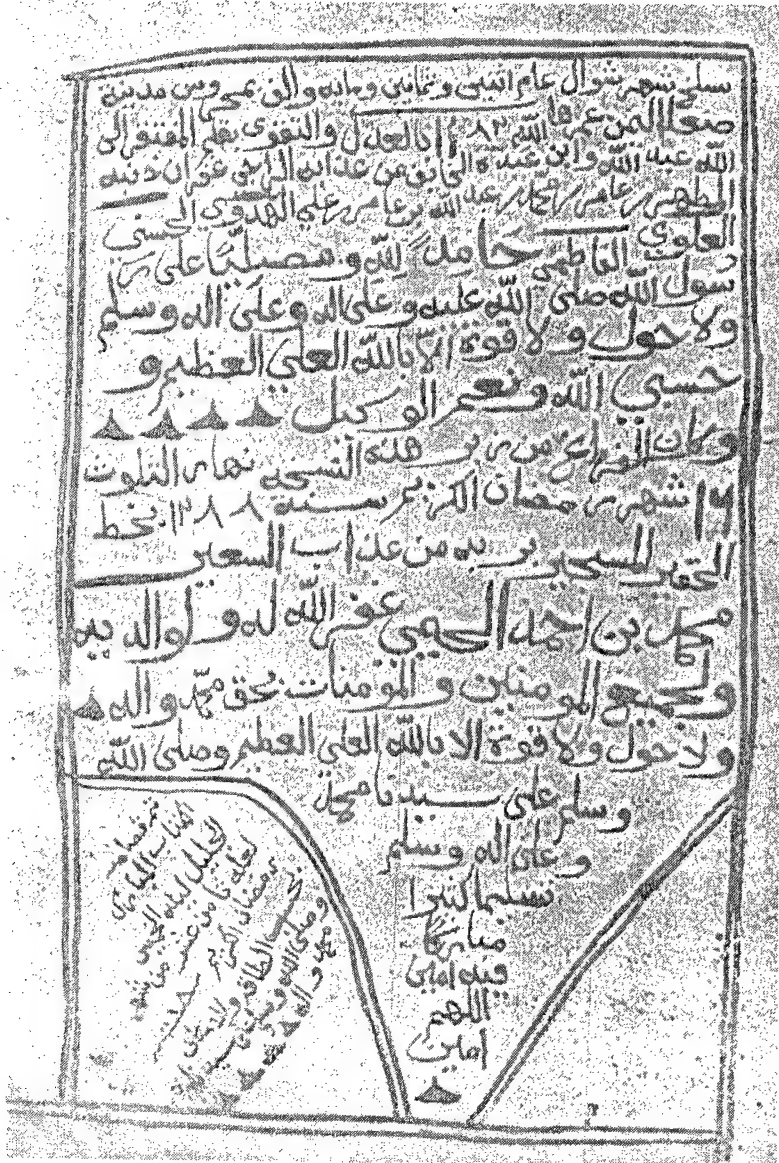 بسلخ شهر شوال عام اثنين وثمانين ومايه والف بمحروس مدينة
صنعا اليمن عمرها الله ١١٨٢ بالعدل والتقوى بقلم المفتقر الى
الله عبد الله وابن عبده الخائف من عذابه الراجي غفران ذنبه
المطهر بن عامر بن محمد بن عبد الله بن عامر بن علي الهدوي الحسني
العلوي الفاطمي حامدًا لله ومصليًا على
رسول الله صلى الله عليه وعلى اله وعلى اله وسلم
ولا حول ولا قوة الا بالله العلي العظيم و
حسبي الله ونعم الوكيل
وكان الفراغ من زبر هذه النسخه نهار الثلوث
شهر رمضان الكريم سنه ١٢٨٨ بخط
الحقير المستجير بربه من عذاب السعير
محمد بن احمد الحيمي غفر الله له ولوالديه
ولجميع المومنين والمومنات بحق محمد واله
ولا حول ولا قوة الا بالله العلي العظيم وصلى الله
وسلم على سيدنا محمد
وعلى اله وسلم
تسليما كثيرا
مباركا
فيه امين
اللهم
امين
رمضان الكريم
بحسب الطاقه
وصلى الله وسلم على سيدنا
محمد واله